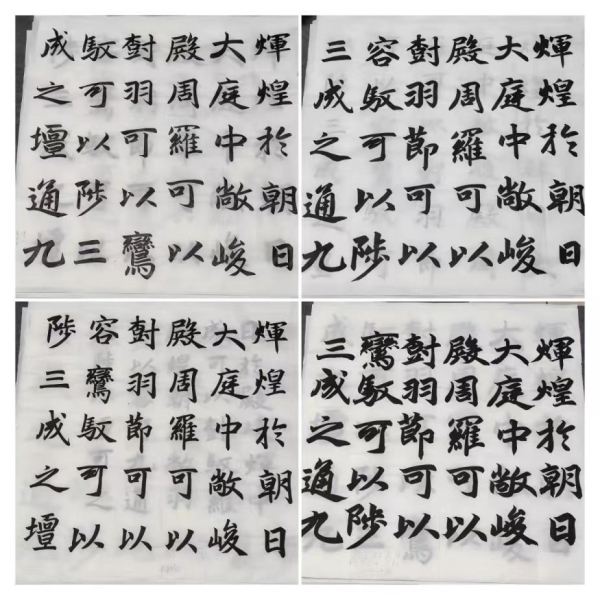 煇煌於朝日
大庭中敞峻
殿周羅可以
尌羽可以鸞
馭可以陟三
成之壇通九
煇煌於朝日
大庭中敞峻
殿周羅可以
尌羽節可以
容馭可以陟
三成之通九
煇煌於朝日
大庭中敞峻
殿周羅可以
尌羽節可以
容鸞馭可以
陟三成之壇
煇煌於朝日
大庭中敞峻
殿周羅可以
尌羽節可以
鸞馭可以陟
三成之通九